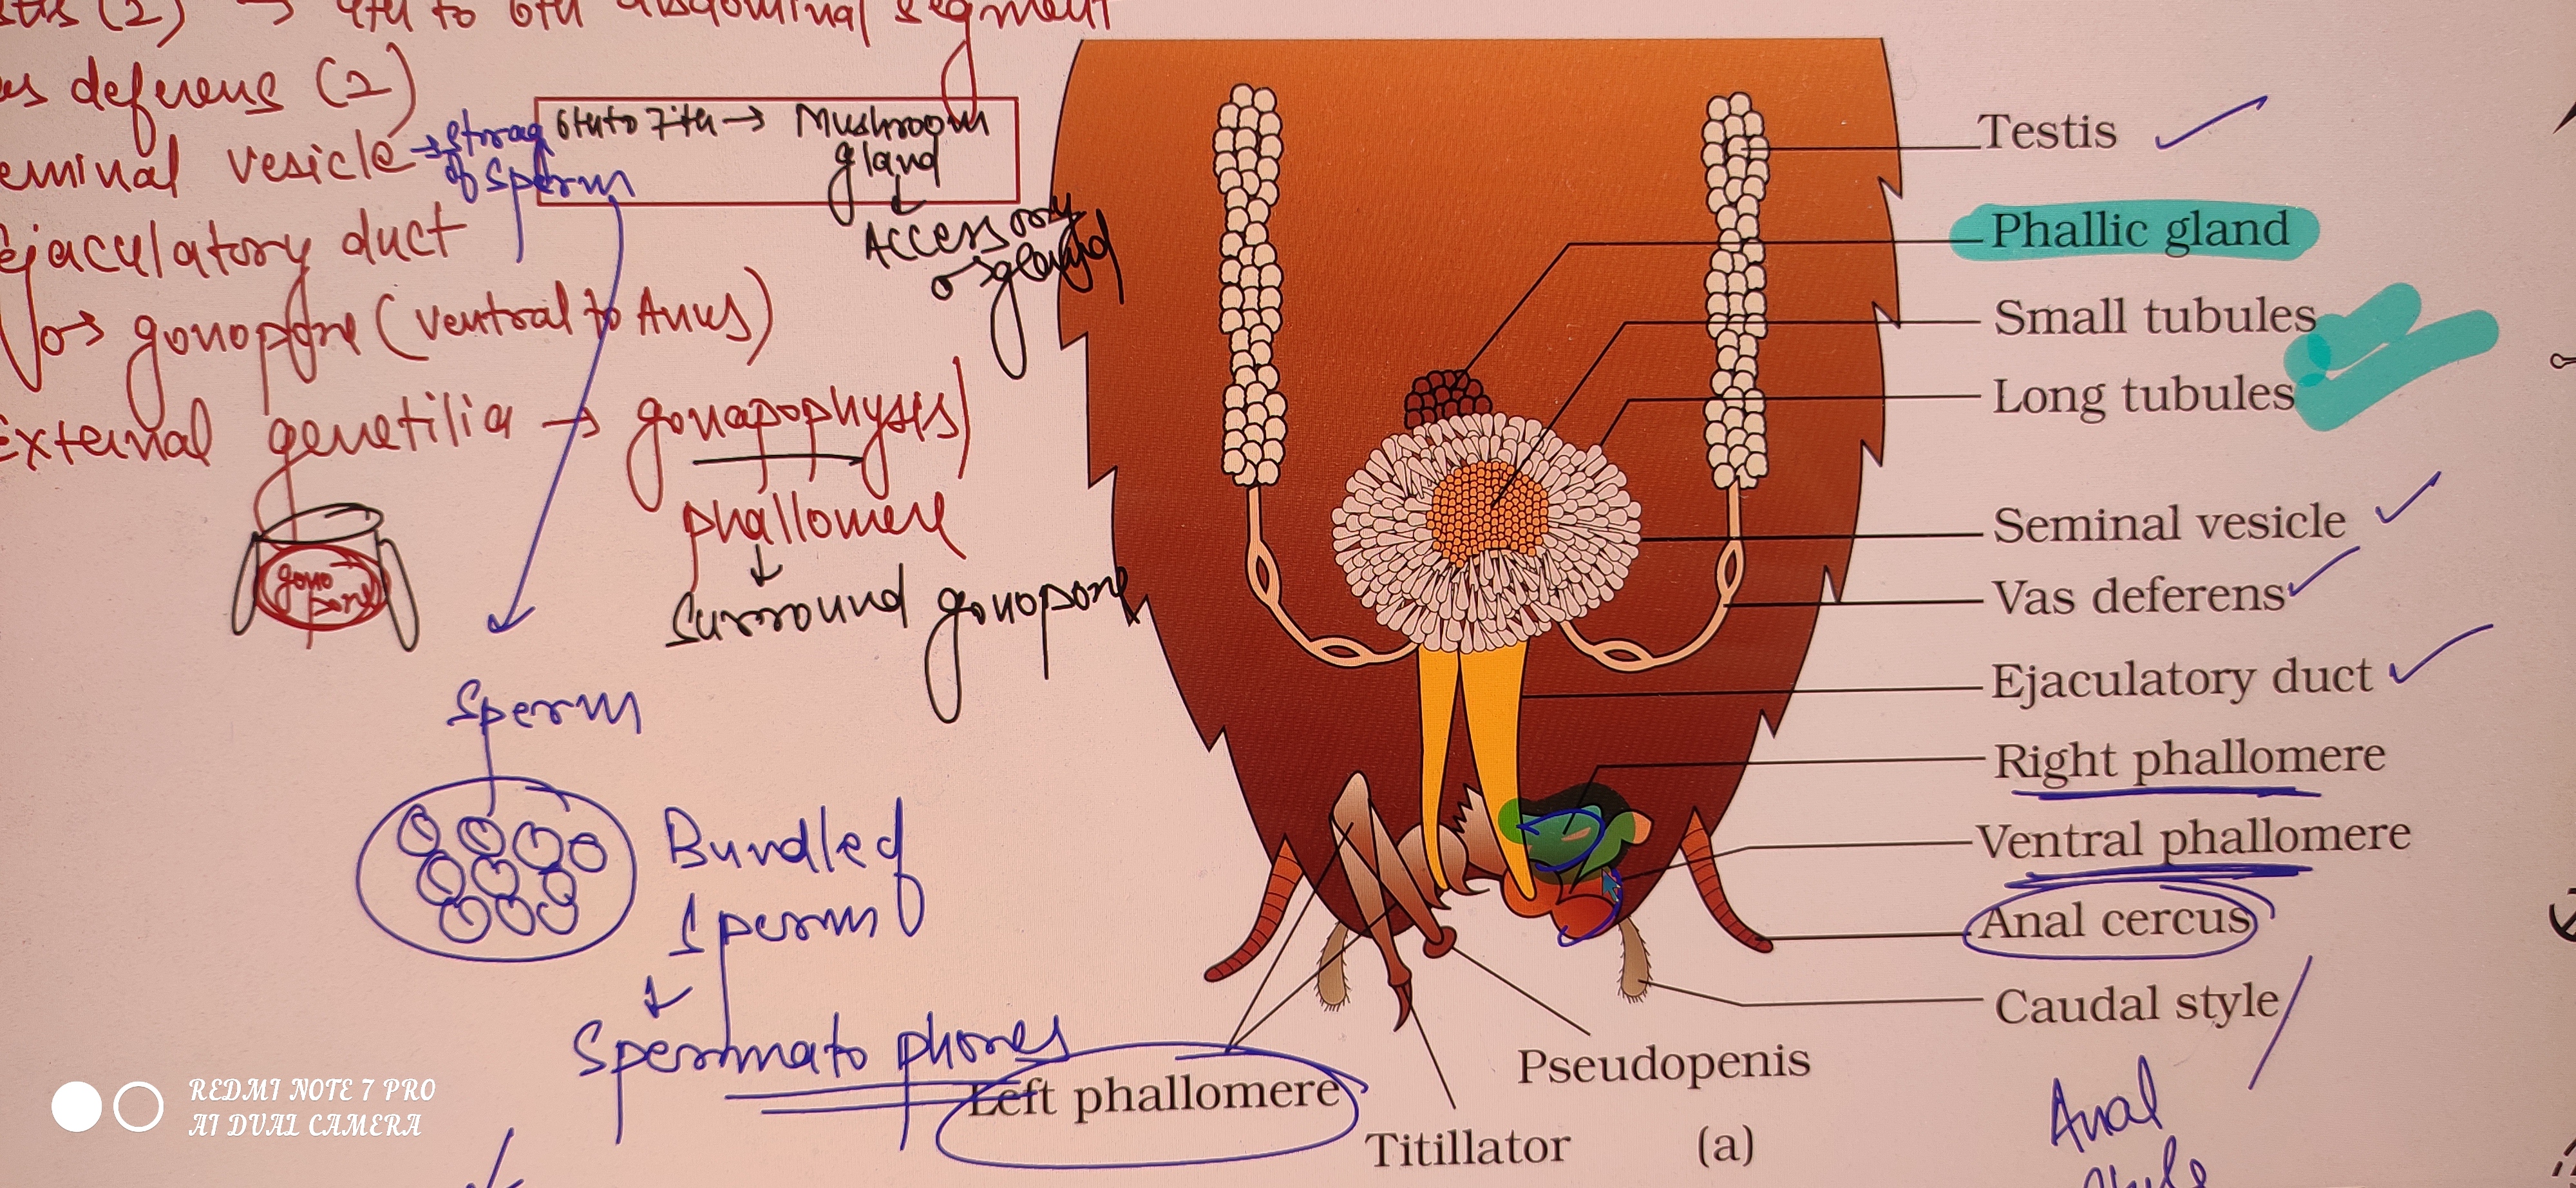 4th to 6th abdominal segment
deferens (2)
vesicle → storag
of sperm
6th to 7th → Mushroom
gland
↓
Accessory
gland
Ejaculatory duct
→ gonopore (ventral to Anus)
External genetilia → gonapophysis
phallomere
↓
Surround gonopore
gono
pore
Sperm
Bundled
Sperm
↓
Spermato phores
Testis
Phallic gland
Small tubules
Long tubules
Seminal vesicle
Vas deferens
Ejaculatory duct
Right phallomere
Ventral phallomere
Anal cercus
Caudal style
Pseudopenis
Left phallomere
Titillator
(a)
Anal
REDMI NOTE 7 PRO
AI DUAL CAMERA